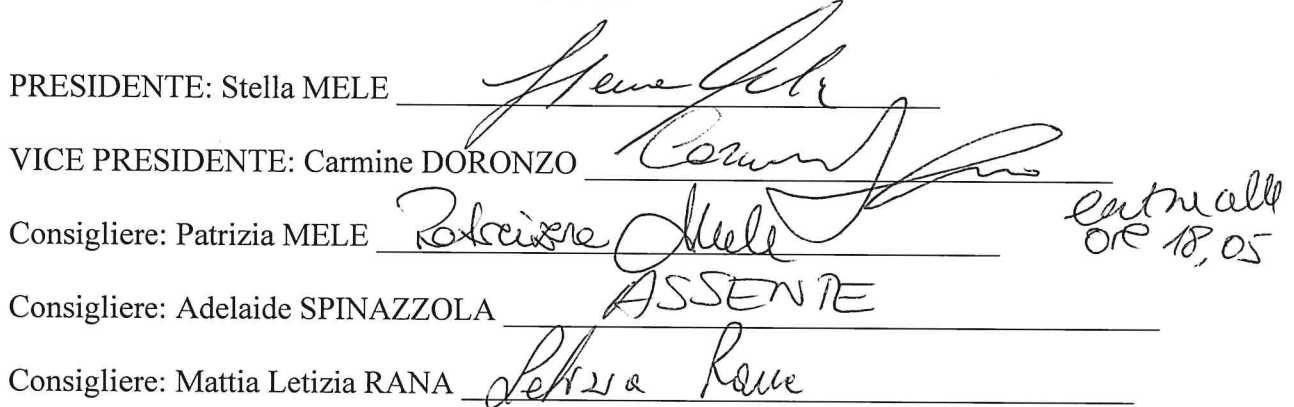 PRESIDENTE: Stella MELE
VICE PRESIDENTE: Carmine DORONZO
Consigliere: Patrizia MELE Patrizia Mele entra alle
ore 18,05
Consigliere: Adelaide SPINAZZOLA ASSENTE
Consigliere: Mattia Letizia RANA Letizia Rana